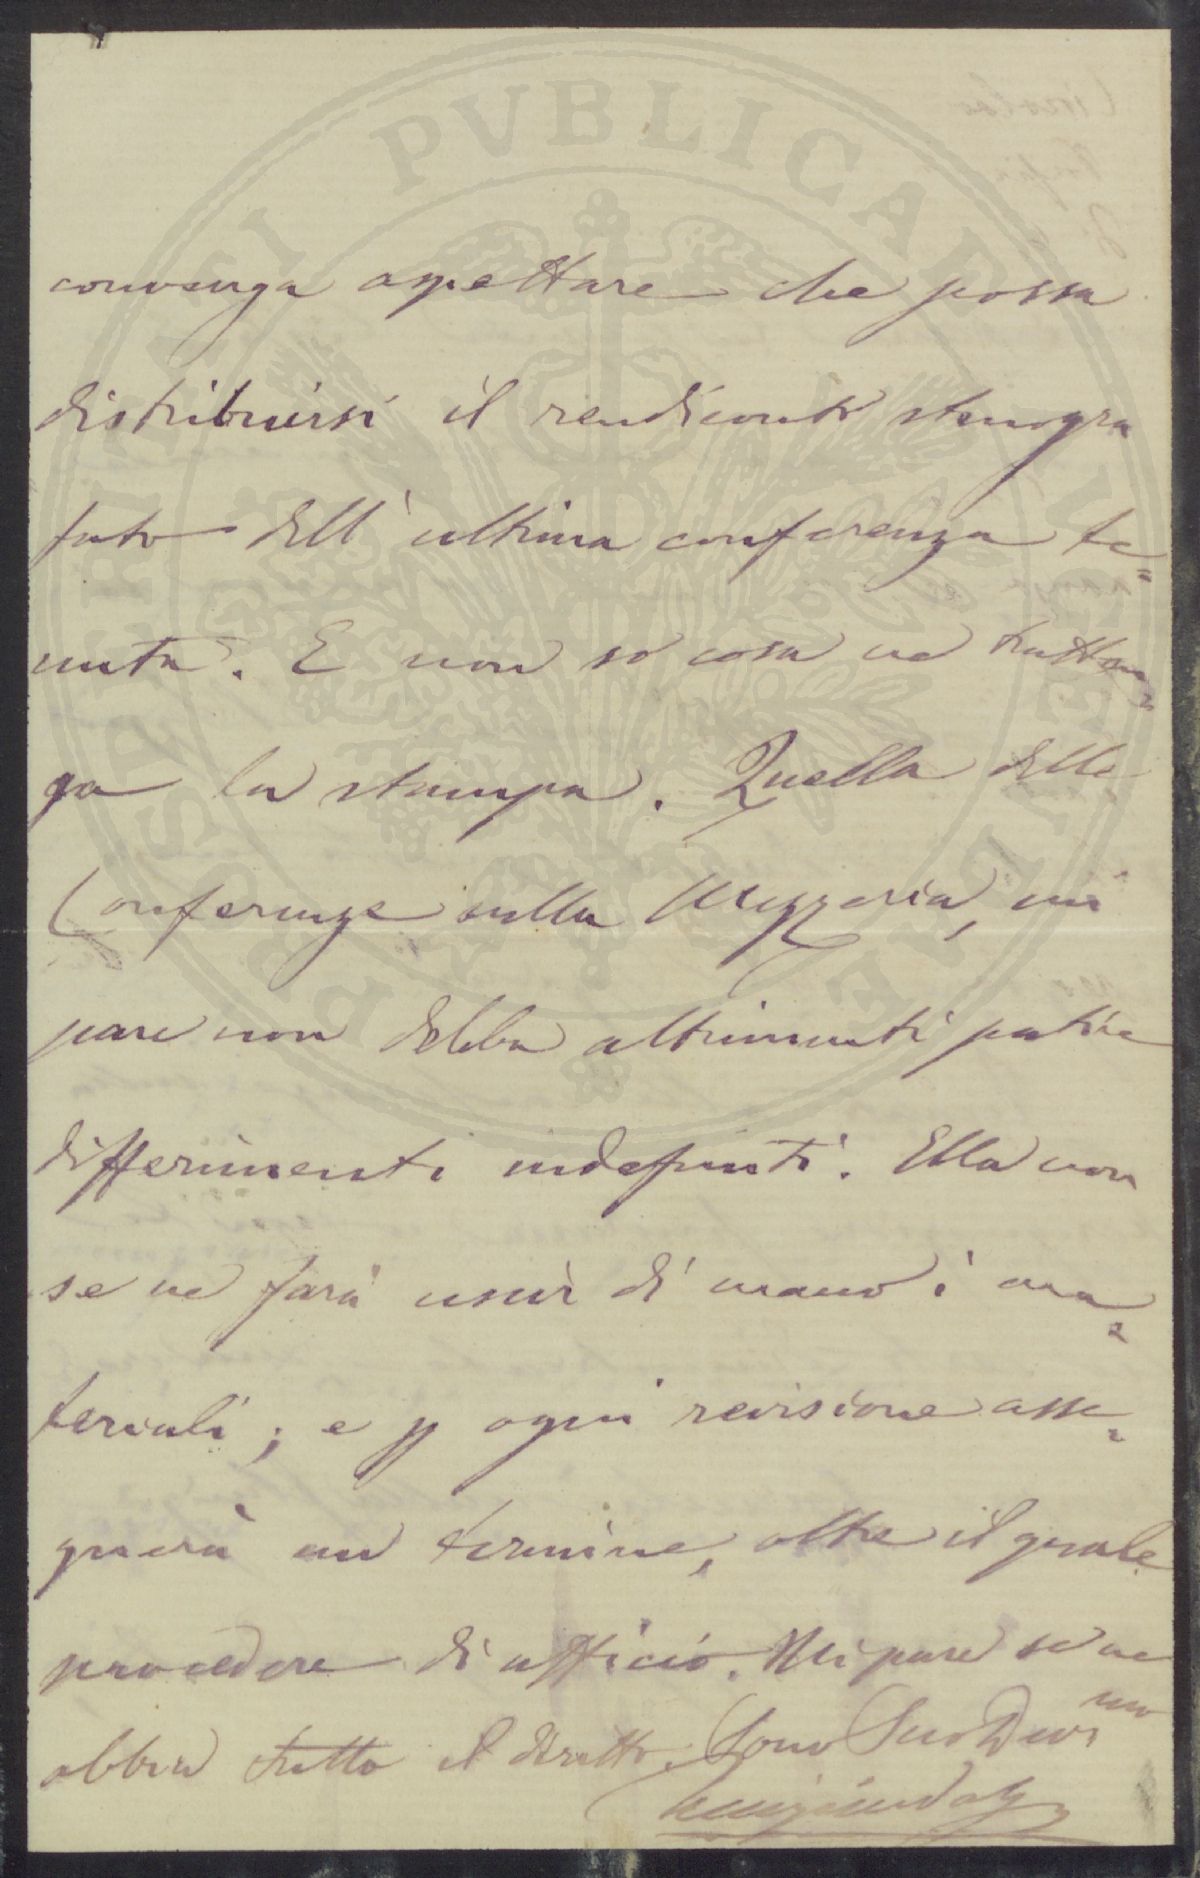 convenga aspettare che possa
distribuirsi il rendiconto stenogra
fato dell'ultima conferenza te=
nuta. E non so cosa ne tratten=
ga la stampa. Quella delle
Conferenze sulla Mezzeria, mi
pare non debba altrimenti patire
differimenti indefiniti. Ella non
se ne farà uscir di mano i ma=
teriali; e p ogni revisione asse=
gnerà un termine, oltre il quale
procedere di ufficio. Mi pare se ne
abbia tutto il diritto. Sono Suo Dev mo
PVBLICAE